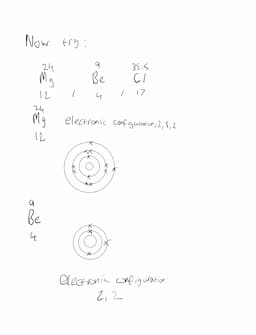 Now try:
24 9 35.5
Mg Be Cl
12 / 4 / 17
24
Mg electronic configuration, 2, 8, 2
12
9
Be
4
electronic configuration:
2, 2